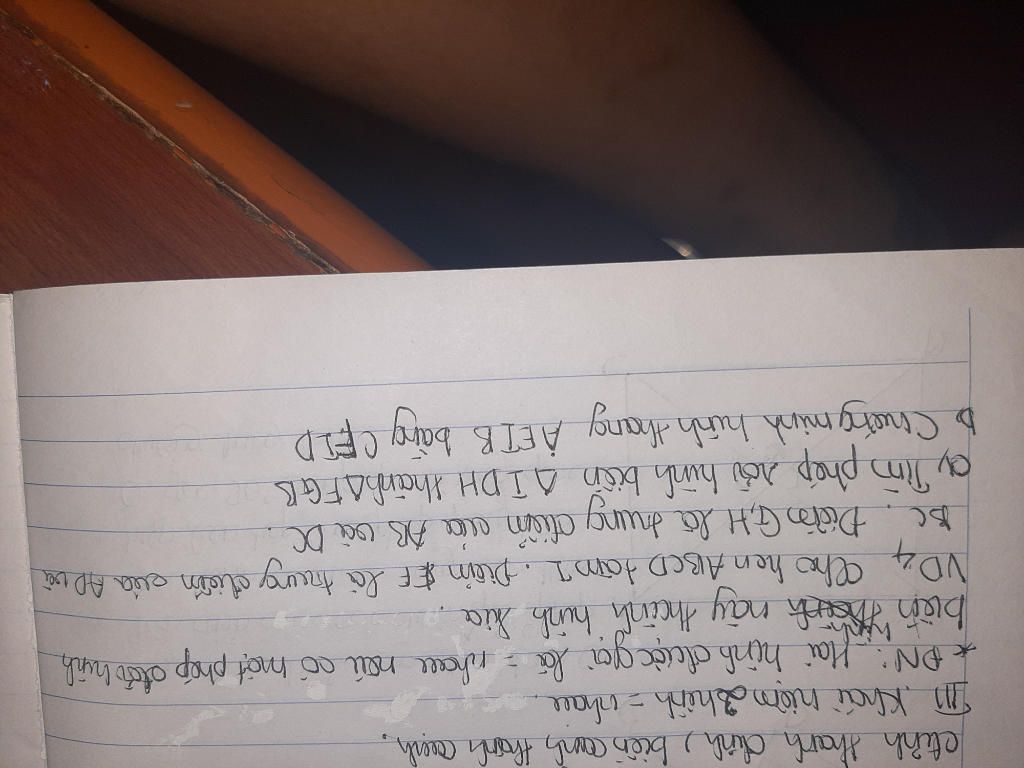 đỉnh thành đỉnh, biến cạnh thành cạnh.
III Khái niệm 2 hình = nhau.
* ĐN: Hai hình được gọi là = nhau nếu có một phép dời hình
biến hình này thành hình kia.
VD4 Cho hcn ABCD tâm I. Điểm E F là trung điểm của AD và
BC. Điểm G, H là trung điểm của AB và DC.
a, Tìm phép dời hình biến Δ IDH thành Δ FGB
b Chứng minh hình thang AEIB bằng CFID